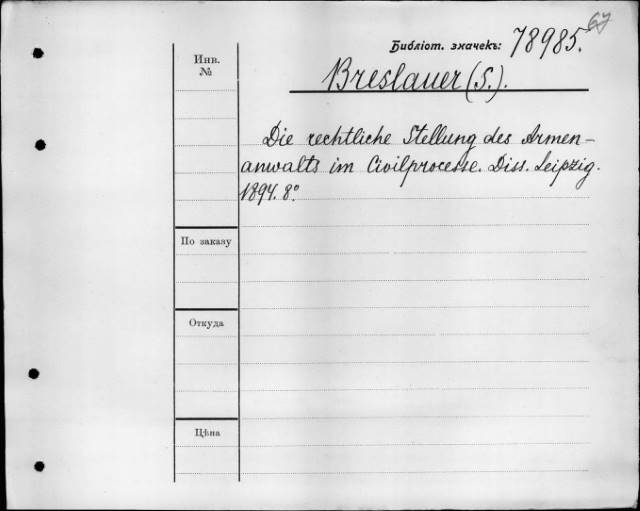 67
Библіот. значекъ: 78985.
Инв.
№
Breslauer (S.).
Die rechtliche Stellung des Armen-
anwalts im Civilprocesse. Diss. Leipzig.
1894. 8°.
По заказу
Откуда
Цѣна